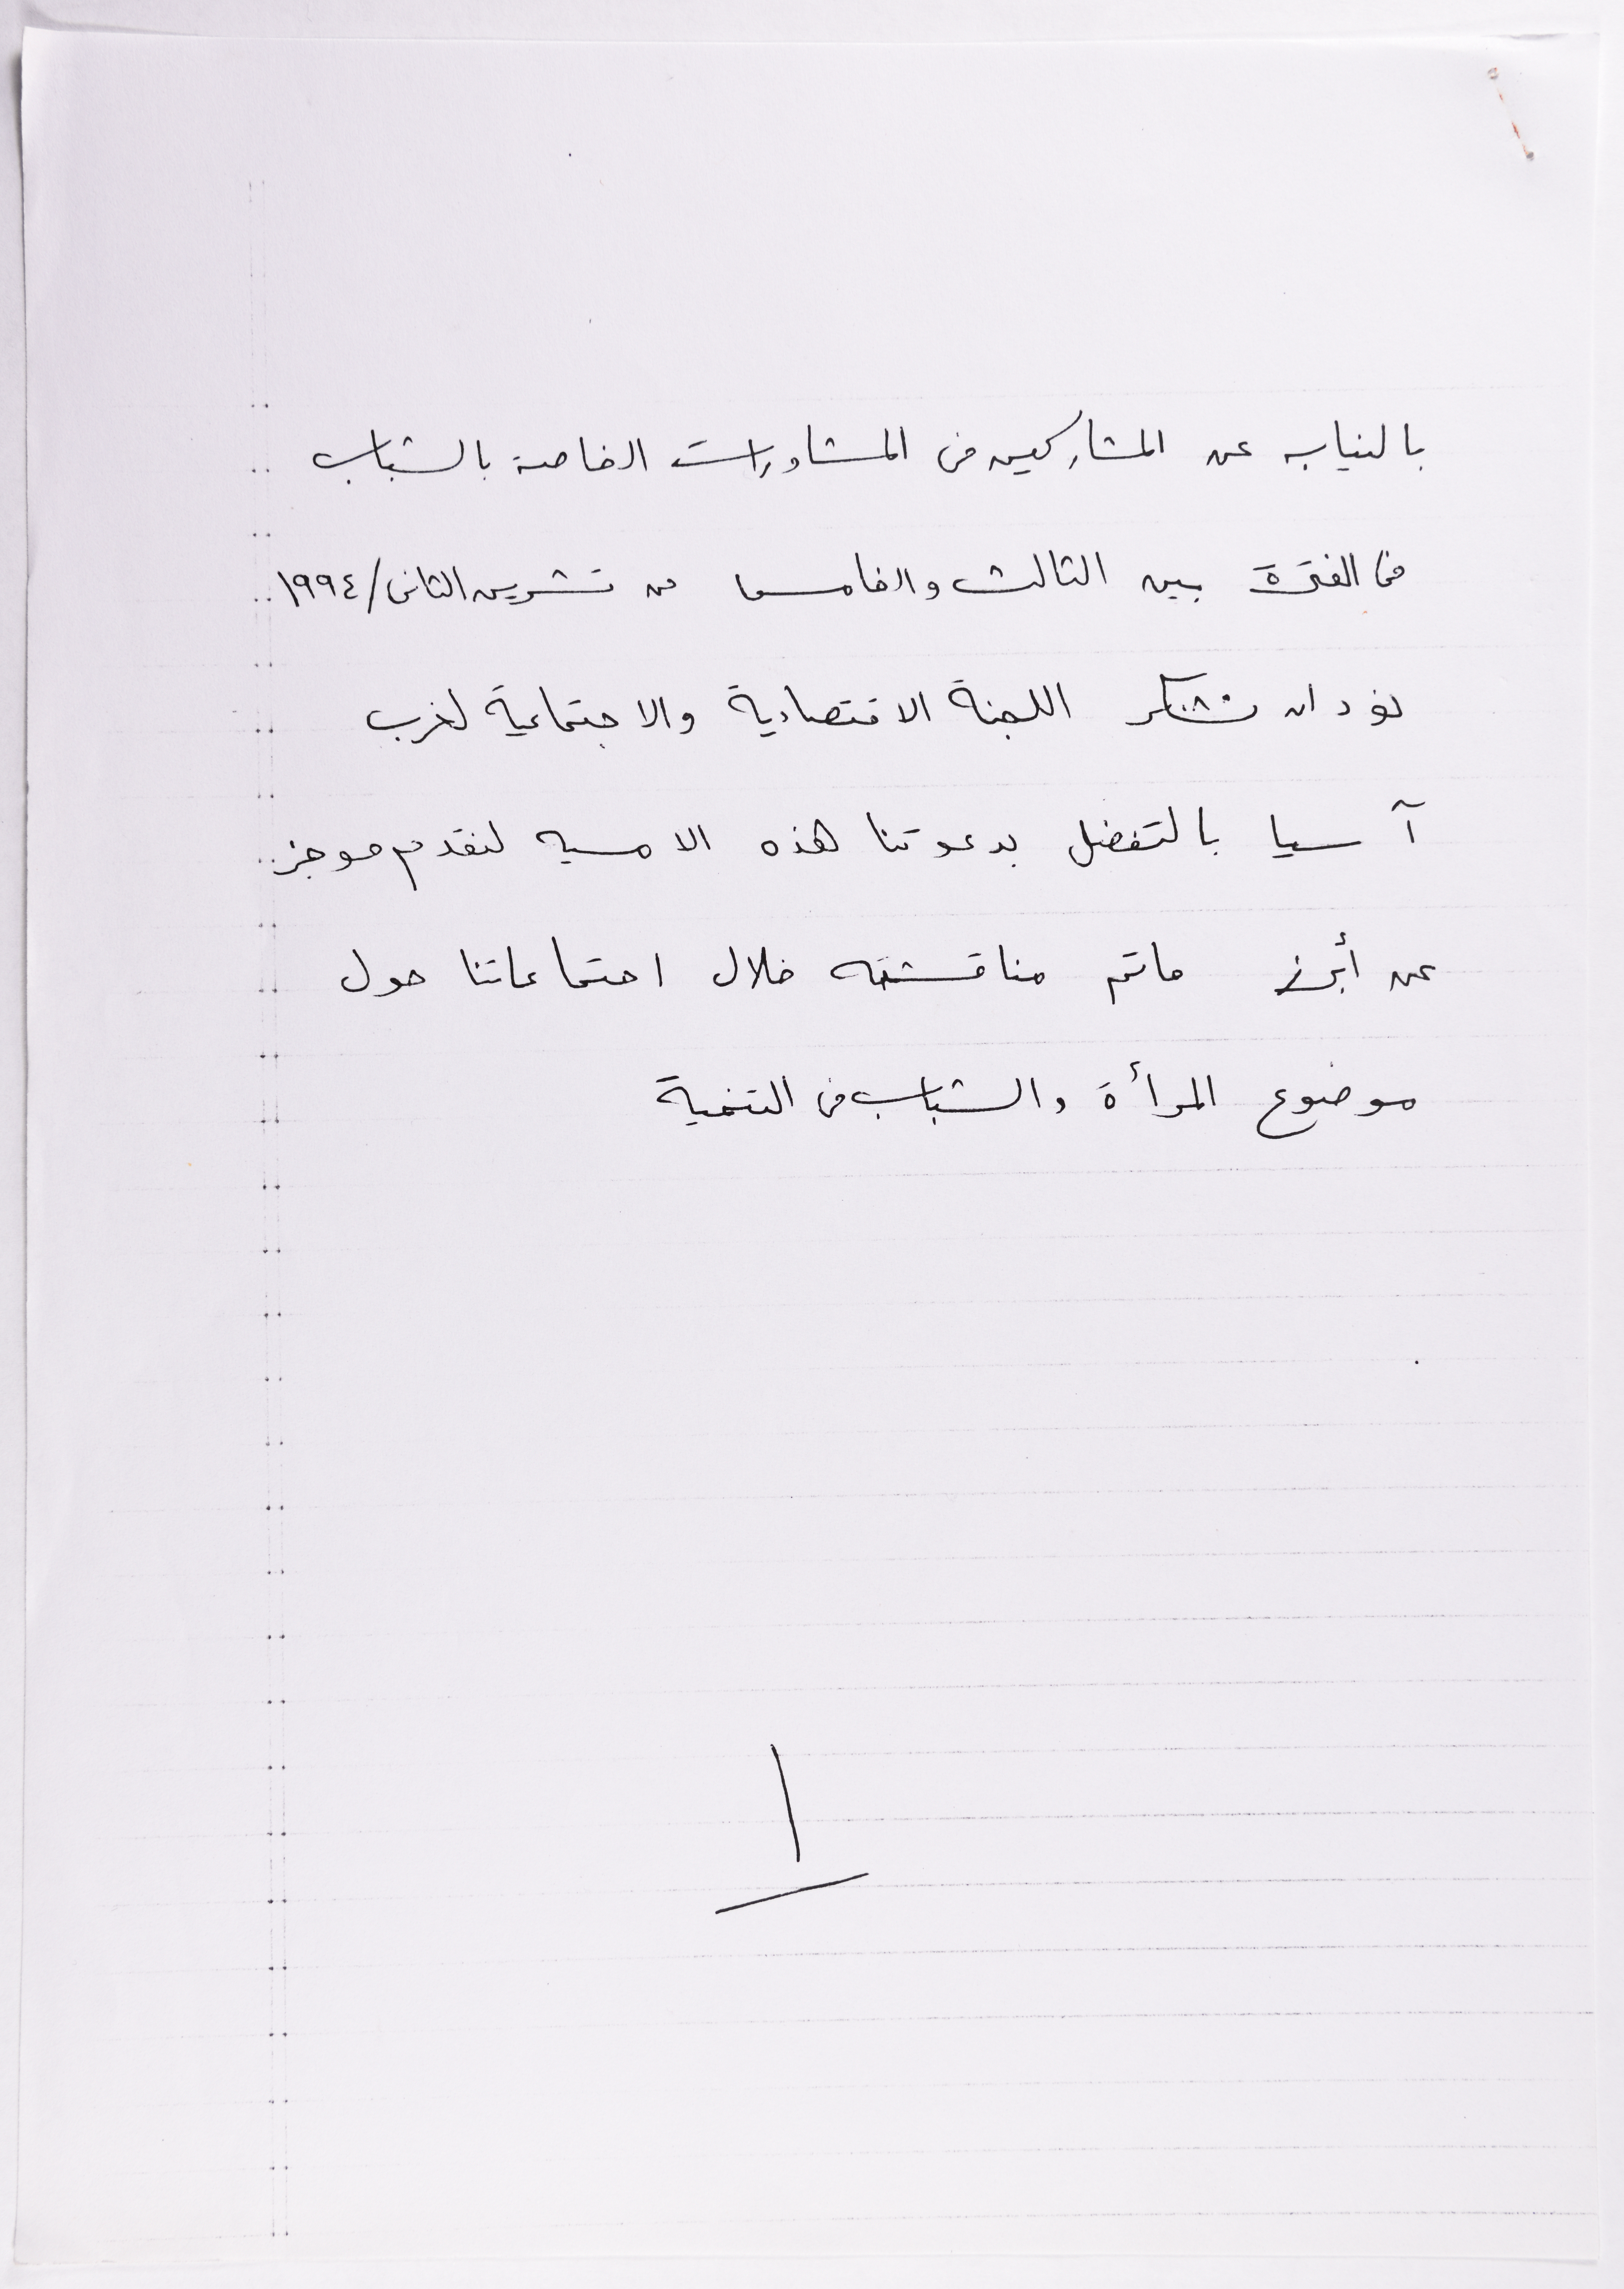 بالنيابه عن المشاركين فى المشاورات الخاصة بالشباب
فى الفترة بين الثالث والخامس من تشرين الثانى/١٩٩٤
نود ان نشكر اللجنة الاقتصادية والاجتماعية لغرب
آسيا بالتفضل بدعوتنا هذه الامسيه لنقدم موجز
عن أبرز ماتم مناقشته خلال اجتماعاتنا حول
موضوع المرأة والشباب فى التنمية
١